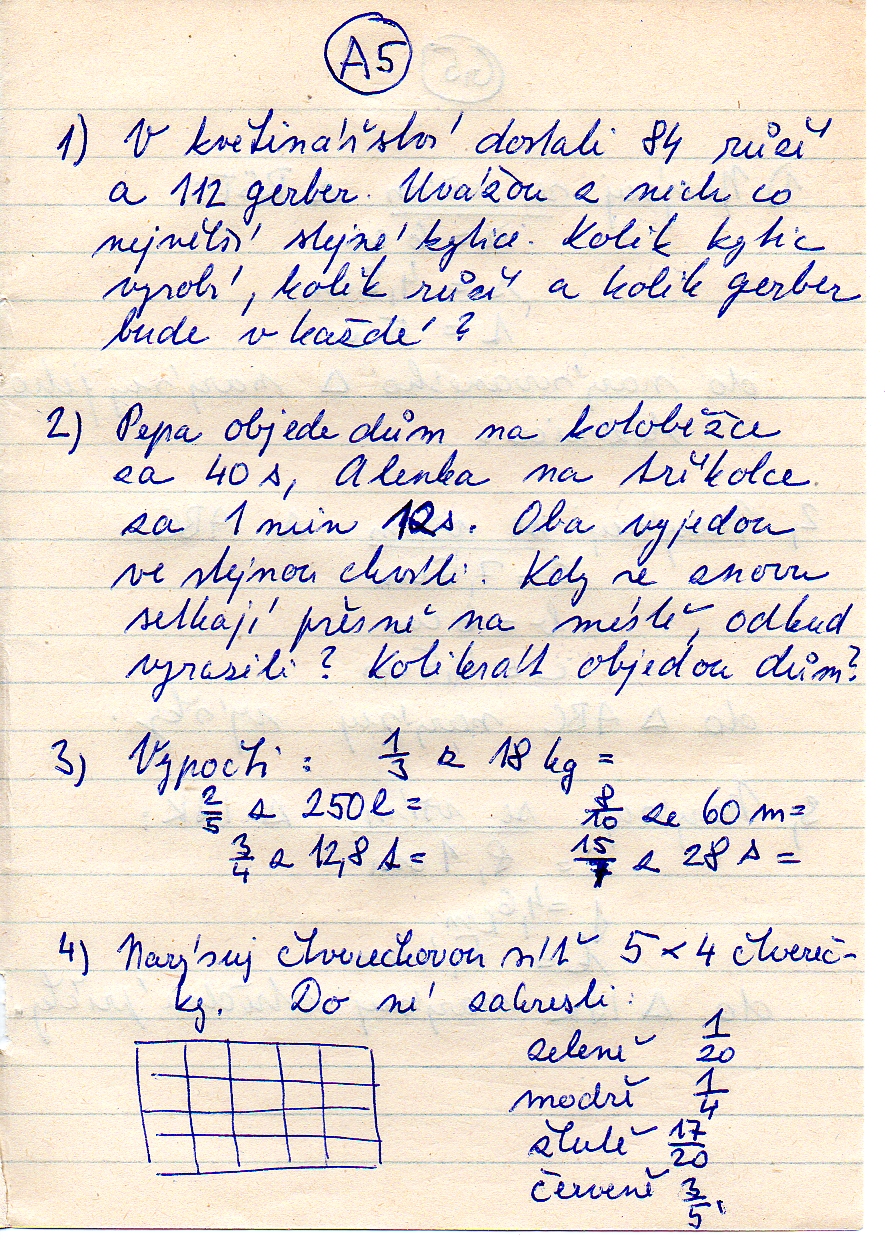 A5
1) V květinářství dostali 84 růží
a 112 gerber. Uvážou z nich co
největší stejné kytice. Kolik kytic
vyrobí, kolik růží a kolik gerber
bude v každé?
2) Pepa objede dům na koloběžce
za 40 s, Alenka na tříkolce
za 1 min 12s. Oba vyjedou
ve stejnou chvíli. Kdy se znovu
setkají přesně na místě, odkud
vyrazili? Kolikrát objedou dům?
3) Vypočti : 1/3 z 18 kg =
2/5 z 250l = 8/10 ze 60 m=
3/4 z 12,8 t = 15/7 z 28 s =
4) Narýsuj čtverečkovou síť 5 × 4 čtvereč-
ky. Do ní zakresli:
zeleně 1/20
modře 1/4
žlutě 17/20
červeně 3/5.